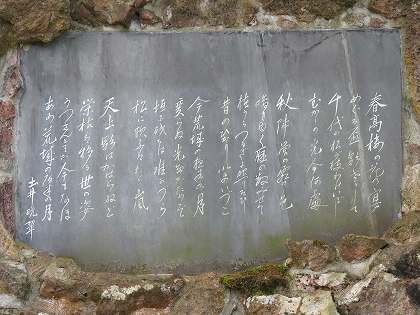 春高楼の花の宴
めぐる盃影さして
千代の松が枝わけ出でし
むかしの光今いづこ
秋陣営の霜の色
鳴き行く雁の数見せて
植うるつるぎに照りそひし
昔の光今いづこ
今荒城の夜半の月
変らぬ光たがためぞ
垣に残るは唯かつら
松に歌ふはただ嵐
天上影はかはらねど
栄枯は移る世の姿
うつさんとてか今もなほ
あゝ荒城の夜半の月
土井晩翠